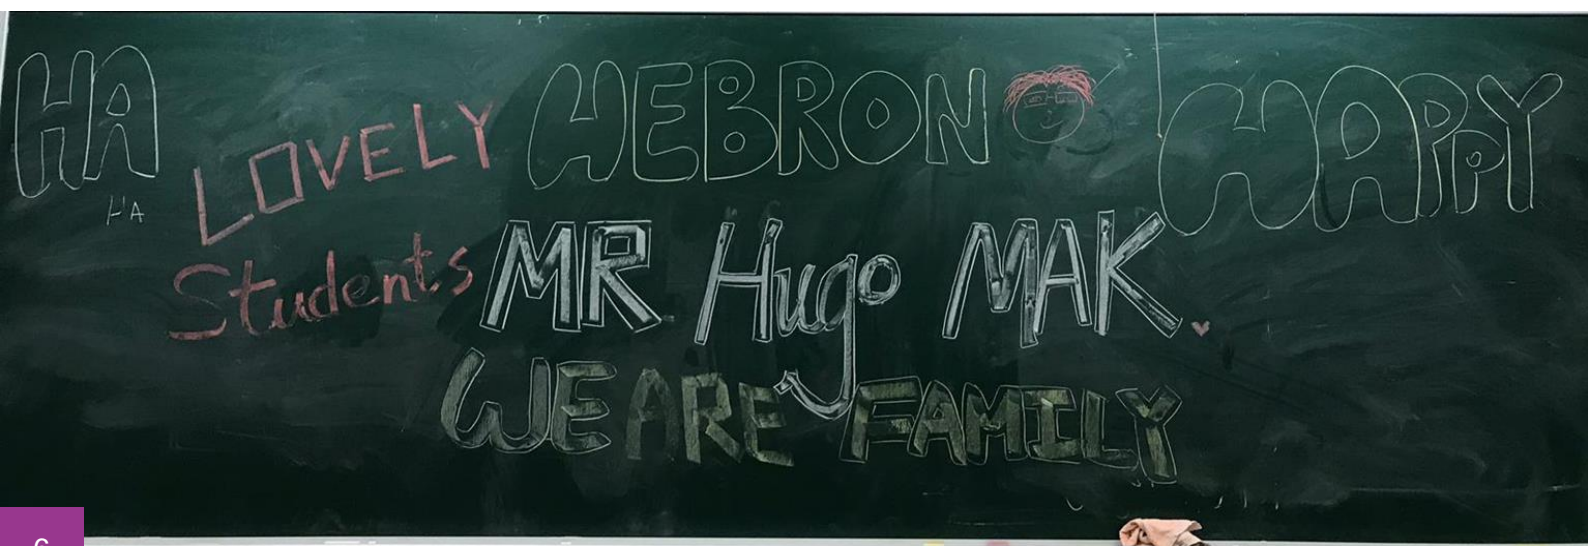 HA
HA
LOVELY
Students
HEBRON
HAPPY
MR Hugo MAK.
WE ARE FAMILY